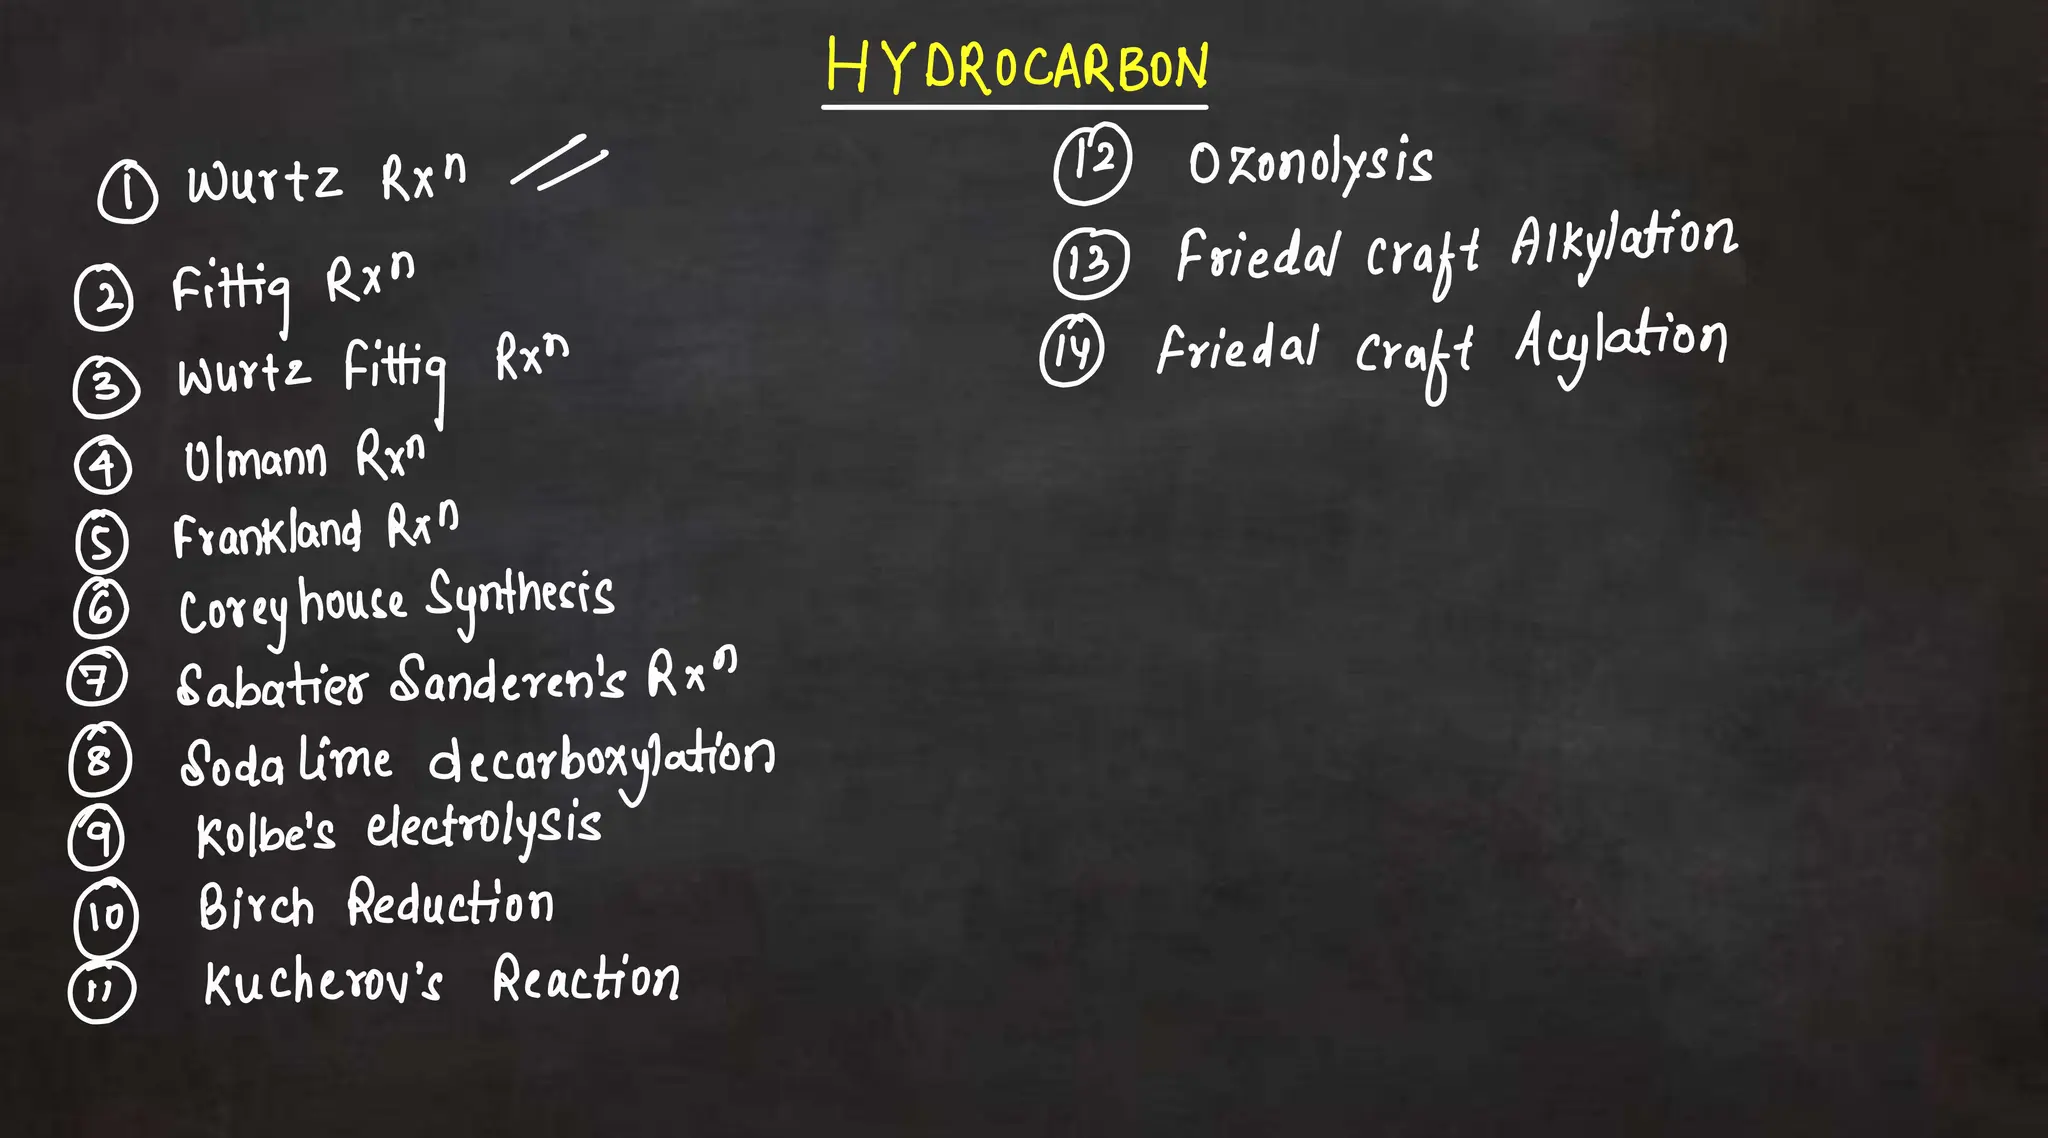 HYDROCARBON
① Wurtz Rxⁿ
② Fittig Rxⁿ
③ Wurtz Fittig Rxⁿ
④ Ulmann Rxⁿ
⑤ Frankland Rxⁿ
⑥ Corey house Synthesis
⑦ Sabatier Sanderen's Rxⁿ
⑧ Soda lime decarboxylation
⑨ Kolbe's electrolysis
⑩ Birch Reduction
⑪ Kucherov's Reaction
⑫ Ozonolysis
⑬ Friedal craft Alkylation
⑭ Friedal craft Acylation